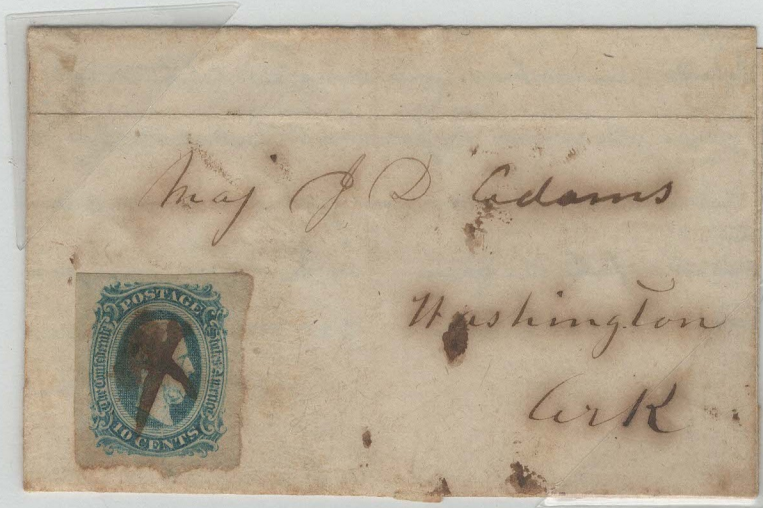 Maj J D Adams
Washington
Ark
POSTAGE
The Confederate States America
10 CENTS